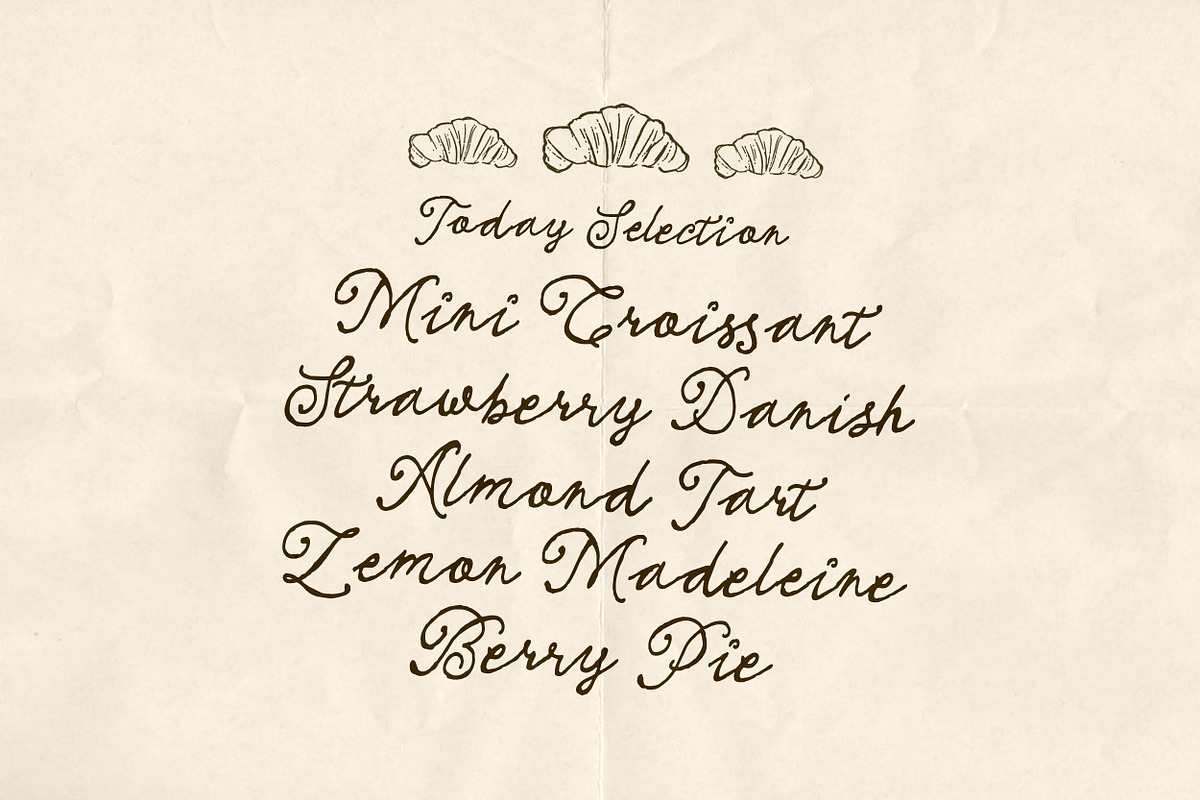 Today Selection
Mini Croissant
Strawberry Danish
Almond Tart
Lemon Madeleine
Berry Pie